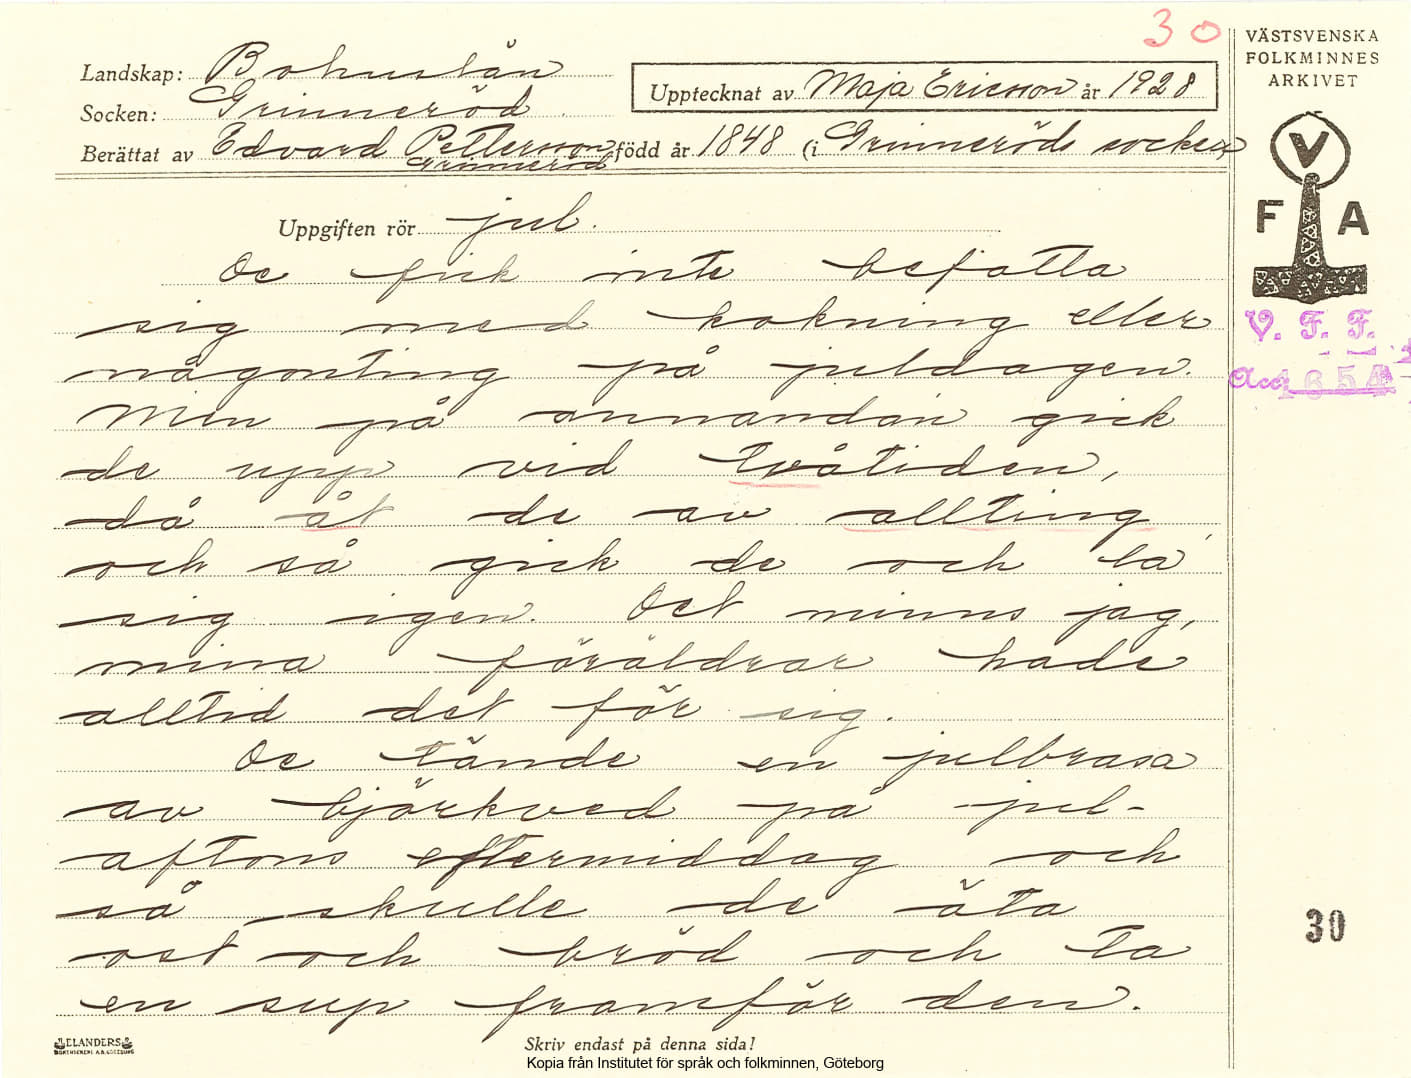 30
VÄSTSVENSKA
FOLKMINNES
ARKIVET
Landskap: Bohuslän
Socken: Grinneröd
Upptecknat av Maja Ericson år 1928
Berättat av Edvard Pettersson, född år 1848 (i Grinneröds socken)
Grinneröd
V
F A
Uppgiften rör jul.
De fick inte befatta
sig med kokning eller
någonting på juldagen.
Men på annandan gick
de upp vid tvåtiden,
då åt de av allting,
och så gick de och la
sig igen. Det minns jag,
mina föräldrar hade
alltid det för sig.
De tände en julbrasa
av björkved på jul-
aftons eftermiddag och
så skulle de äta
ost och bröd och ta
en sup framför den.
V. F. F.
Acc. 1654
30
ELANDERS
Skriv endast på denna sida!
Kopia från Institutet för språk och folkminnen, Göteborg